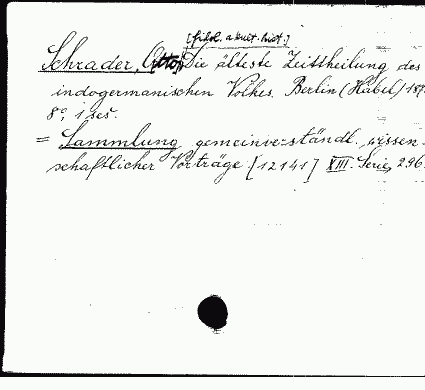 [filol. a kult.-hist.]
Schrader, O[tto], Die älteste Zeittheilung des
indogermanischen Volkes. Berlin (Habel) 187
8°, 1 seš.
= Sammlung gemeinverständl. wissen-
schaftlicher Vorträge [12141] XIII. Serie, 296.